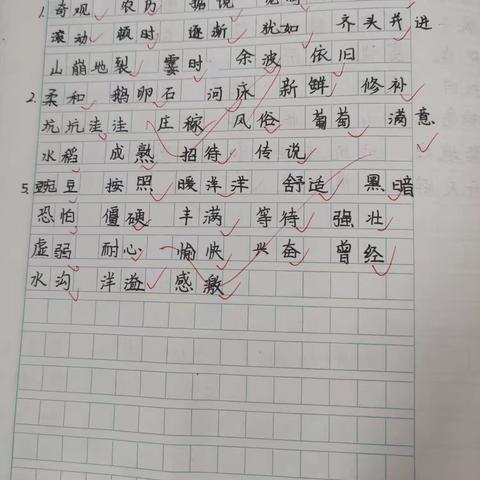 1. 奇观 农历 据说
滚动 顿时 逐渐 犹如 齐头并进
山崩地裂 霎时 余波 依旧
2. 柔和 鹅卵石 河床 新鲜 修补
坑坑洼洼 庄稼 风俗 葡萄 满意
水稻 成熟 招待 传说
5. 豌豆 按照 暖洋洋 舒适 黑暗
恐怕 僵硬 丰满 等待 强壮
虚弱 耐心 愉快 兴奋 曾经
水沟 洋溢 感激